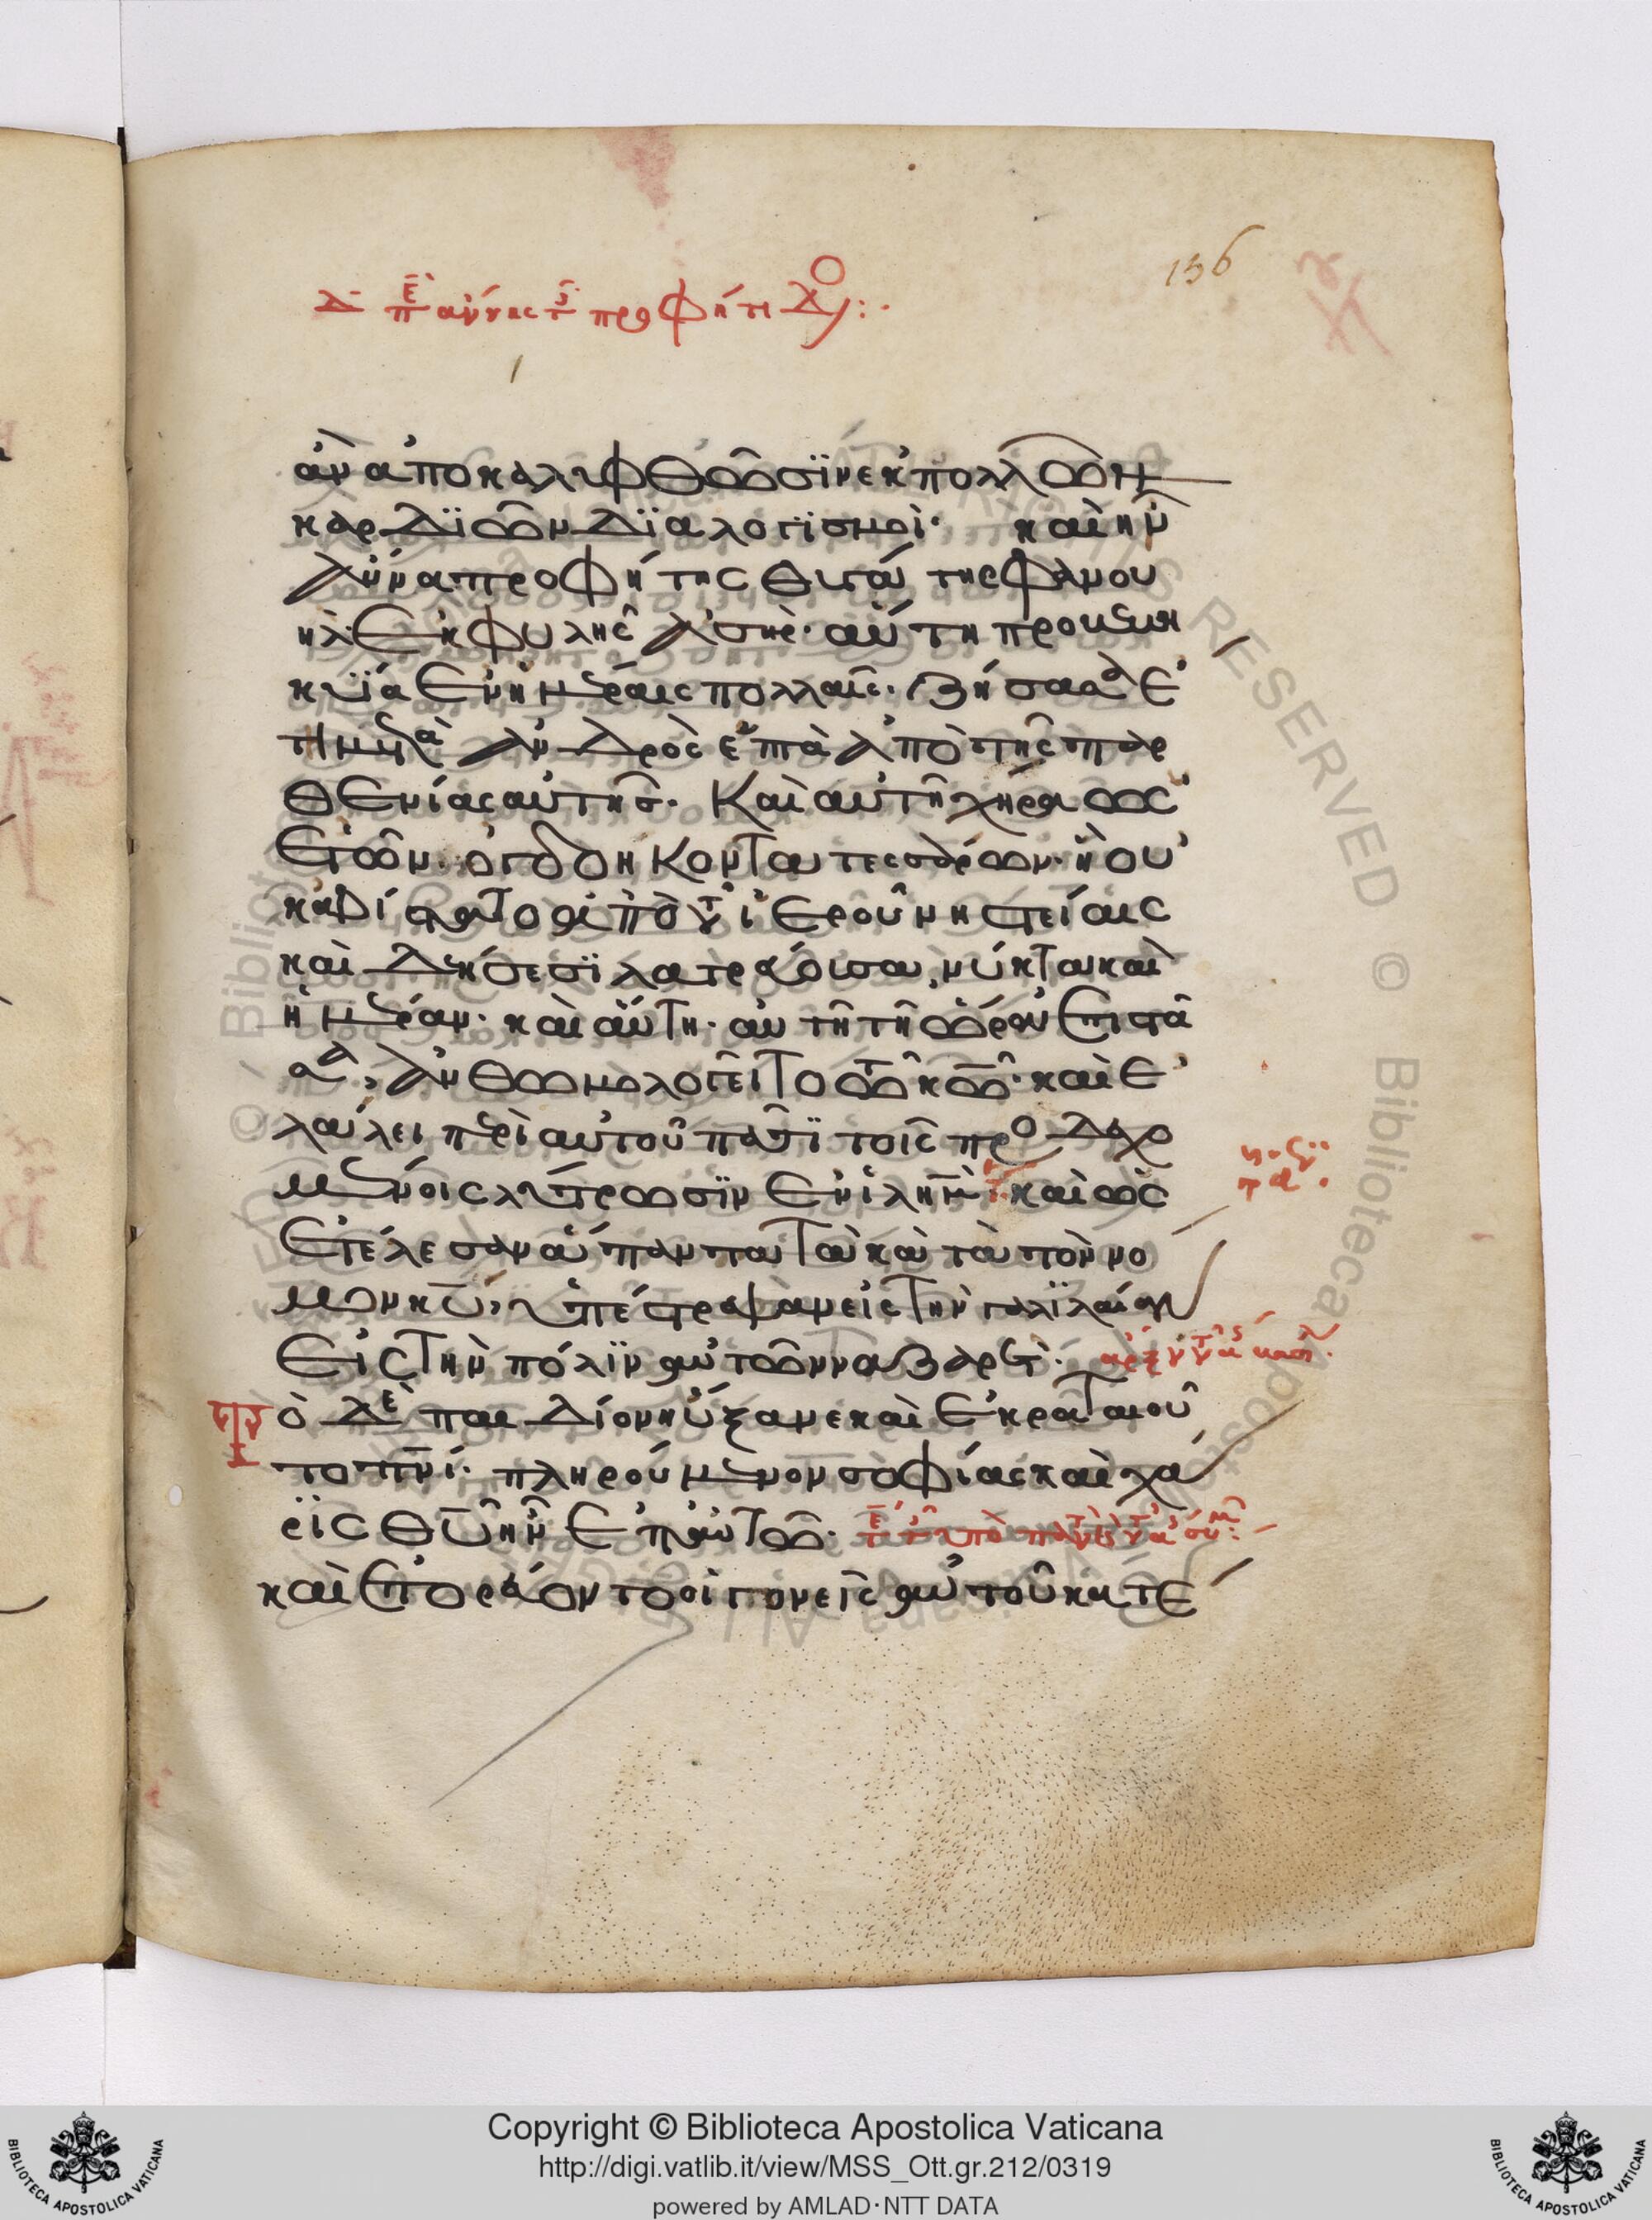 156
Δ περὶ ἄννης τῆς προφήτιδος:·
ἂν ἀποκαλυφθῶσϊν ἐκ πολλῶν
καρδϊῶν δϊαλογϊσμοὶ· καὶ ἦν
ἄννα προφήτης θυγάτηρ φανου
ὴλ· ἐκ φυλῆς ἀσὴρ· αὕτη προβεβη
κυϊα ἐν ἡμέραις πολλαῖς· ζήσασα ἔ
τη μετὰ ἀνδρὸς ἑπτὰ ἀπὸ τῆς παρ
θενίας αὐτῆς· Καὶ αὐτὴ χήρα ὡς
ἐτῶν· ὀγδοηκοντατεσσάρων· ἣ οὐκ
ἀφίστατο ἀπὸ τοῦ ἱεροῦ νηστείαις
καὶ δεήσεσϊ λατρεύουσα, νύκτα καὶ
ἡμέραν· καὶ αὕτη· αὐτῆ τῆ ὥρα ἐπιστᾶ
σα, ἀνθωμολογεῖτο τῶ κῶ· καὶ ἐ
λάλει περὶ αὐτοῦ πᾶσϊ τοῖς προσδεχο
μένοις λύτρωσϊν ἐν ἱλημ· καὶ ὡς
ἐτέλεσαν ἅπαντα τὰ κατὰ τὸν νό
μον κυ, ὑπέστρεψαν εἰς τὴν γαλϊλαίαν
εἰς τὴν πόλϊν αὐτῶν ναζαρέτ·
Τὸ δὲ παιδίον ηὔξανε καὶ ἐκραταιοῦ
το πνι· πληρούμενον σοφίας καὶ χά
ρϊς θυ ἦν ἐπ' αὐτῶ·
καὶ ἐπορεύοντο οἱ γονεῖς αὐτοῦ κατ' ἔ
Copyright © Biblioteca Apostolica Vaticana
http://digi.vatlib.it/view/MSS_Ott.gr.212/0319
powered by AMLAD·NTT DATA
BIBLIOTECA APOSTOLICA VATICANA
BIBLIOTECA APOSTOLICA VATICANA